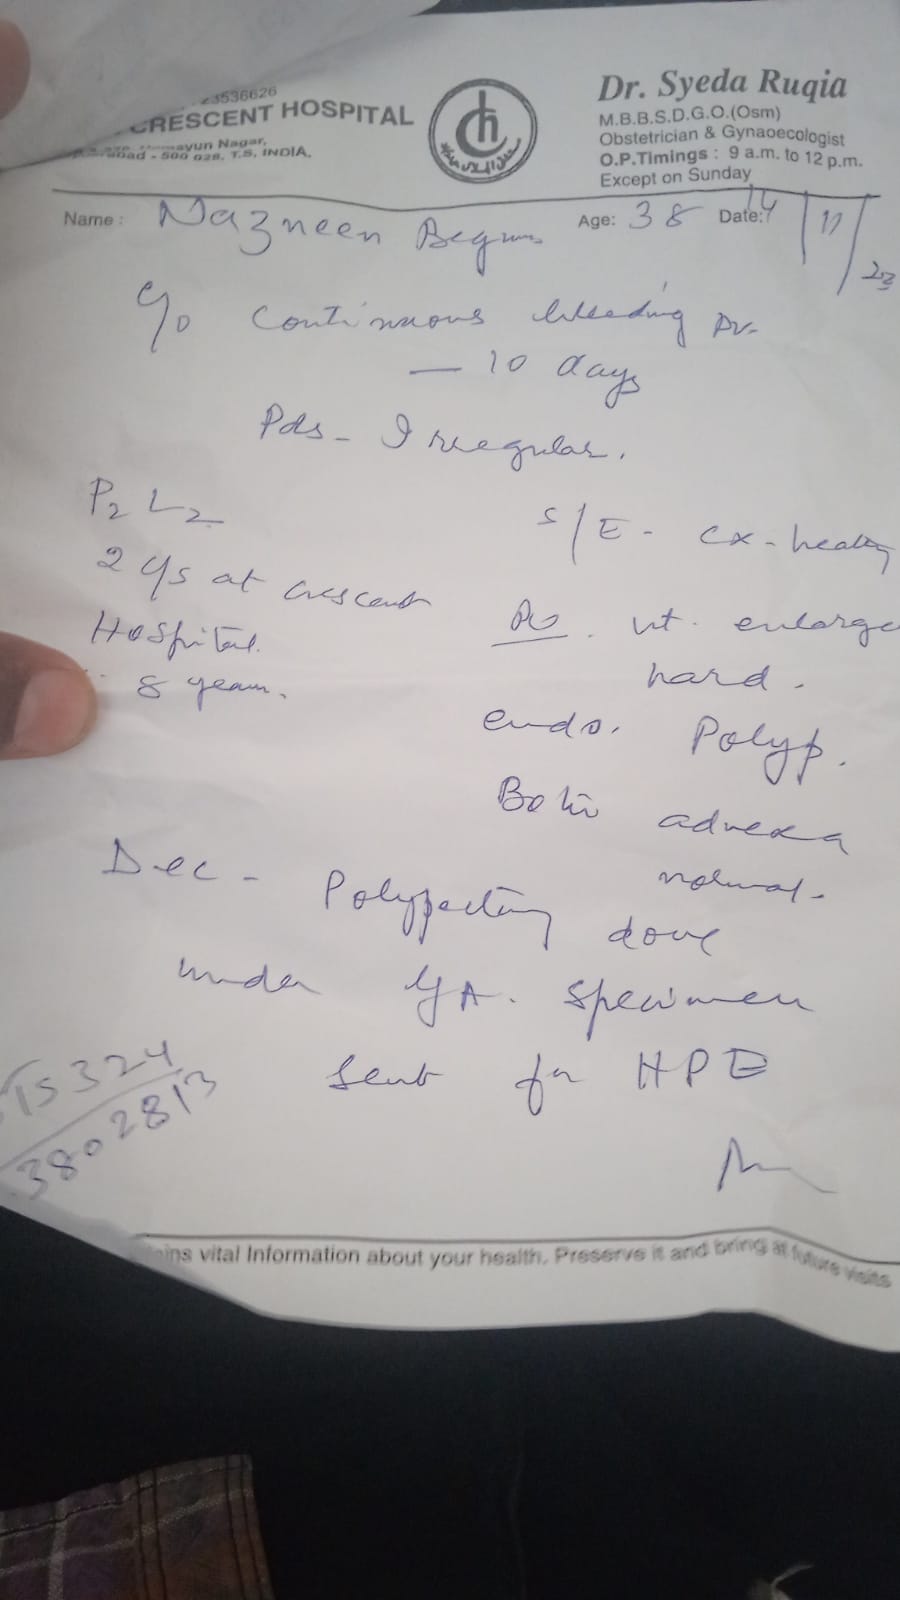 23536626
CRESCENT HOSPITAL
ayun Nagar,
bad - 500 028. T.S. INDIA.
Dr. Syeda Ruqia
M.B.B.S.D.G.O.(Osm)
Obstetrician & Gynaoecologist
O.P.Timings : 9 a.m. to 12 p.m.
Except on Sunday
Name : Nazneen Begum Age: 38 Date: 14/11/23
c/o continuous bleeding pv-
— 10 days
Pds - Irregular.
P2 L2
2 at crescent
Hospital.
8 years.
S/E - cx - healthy
ut. enlarge
hard.
endo. Polyp.
Both adnexa
normal.
Dec - Polypectomy done
under GA. Specimen
sent for HPE
15324
3802813
ins vital Information about your health. Preserve it and bring at future visits